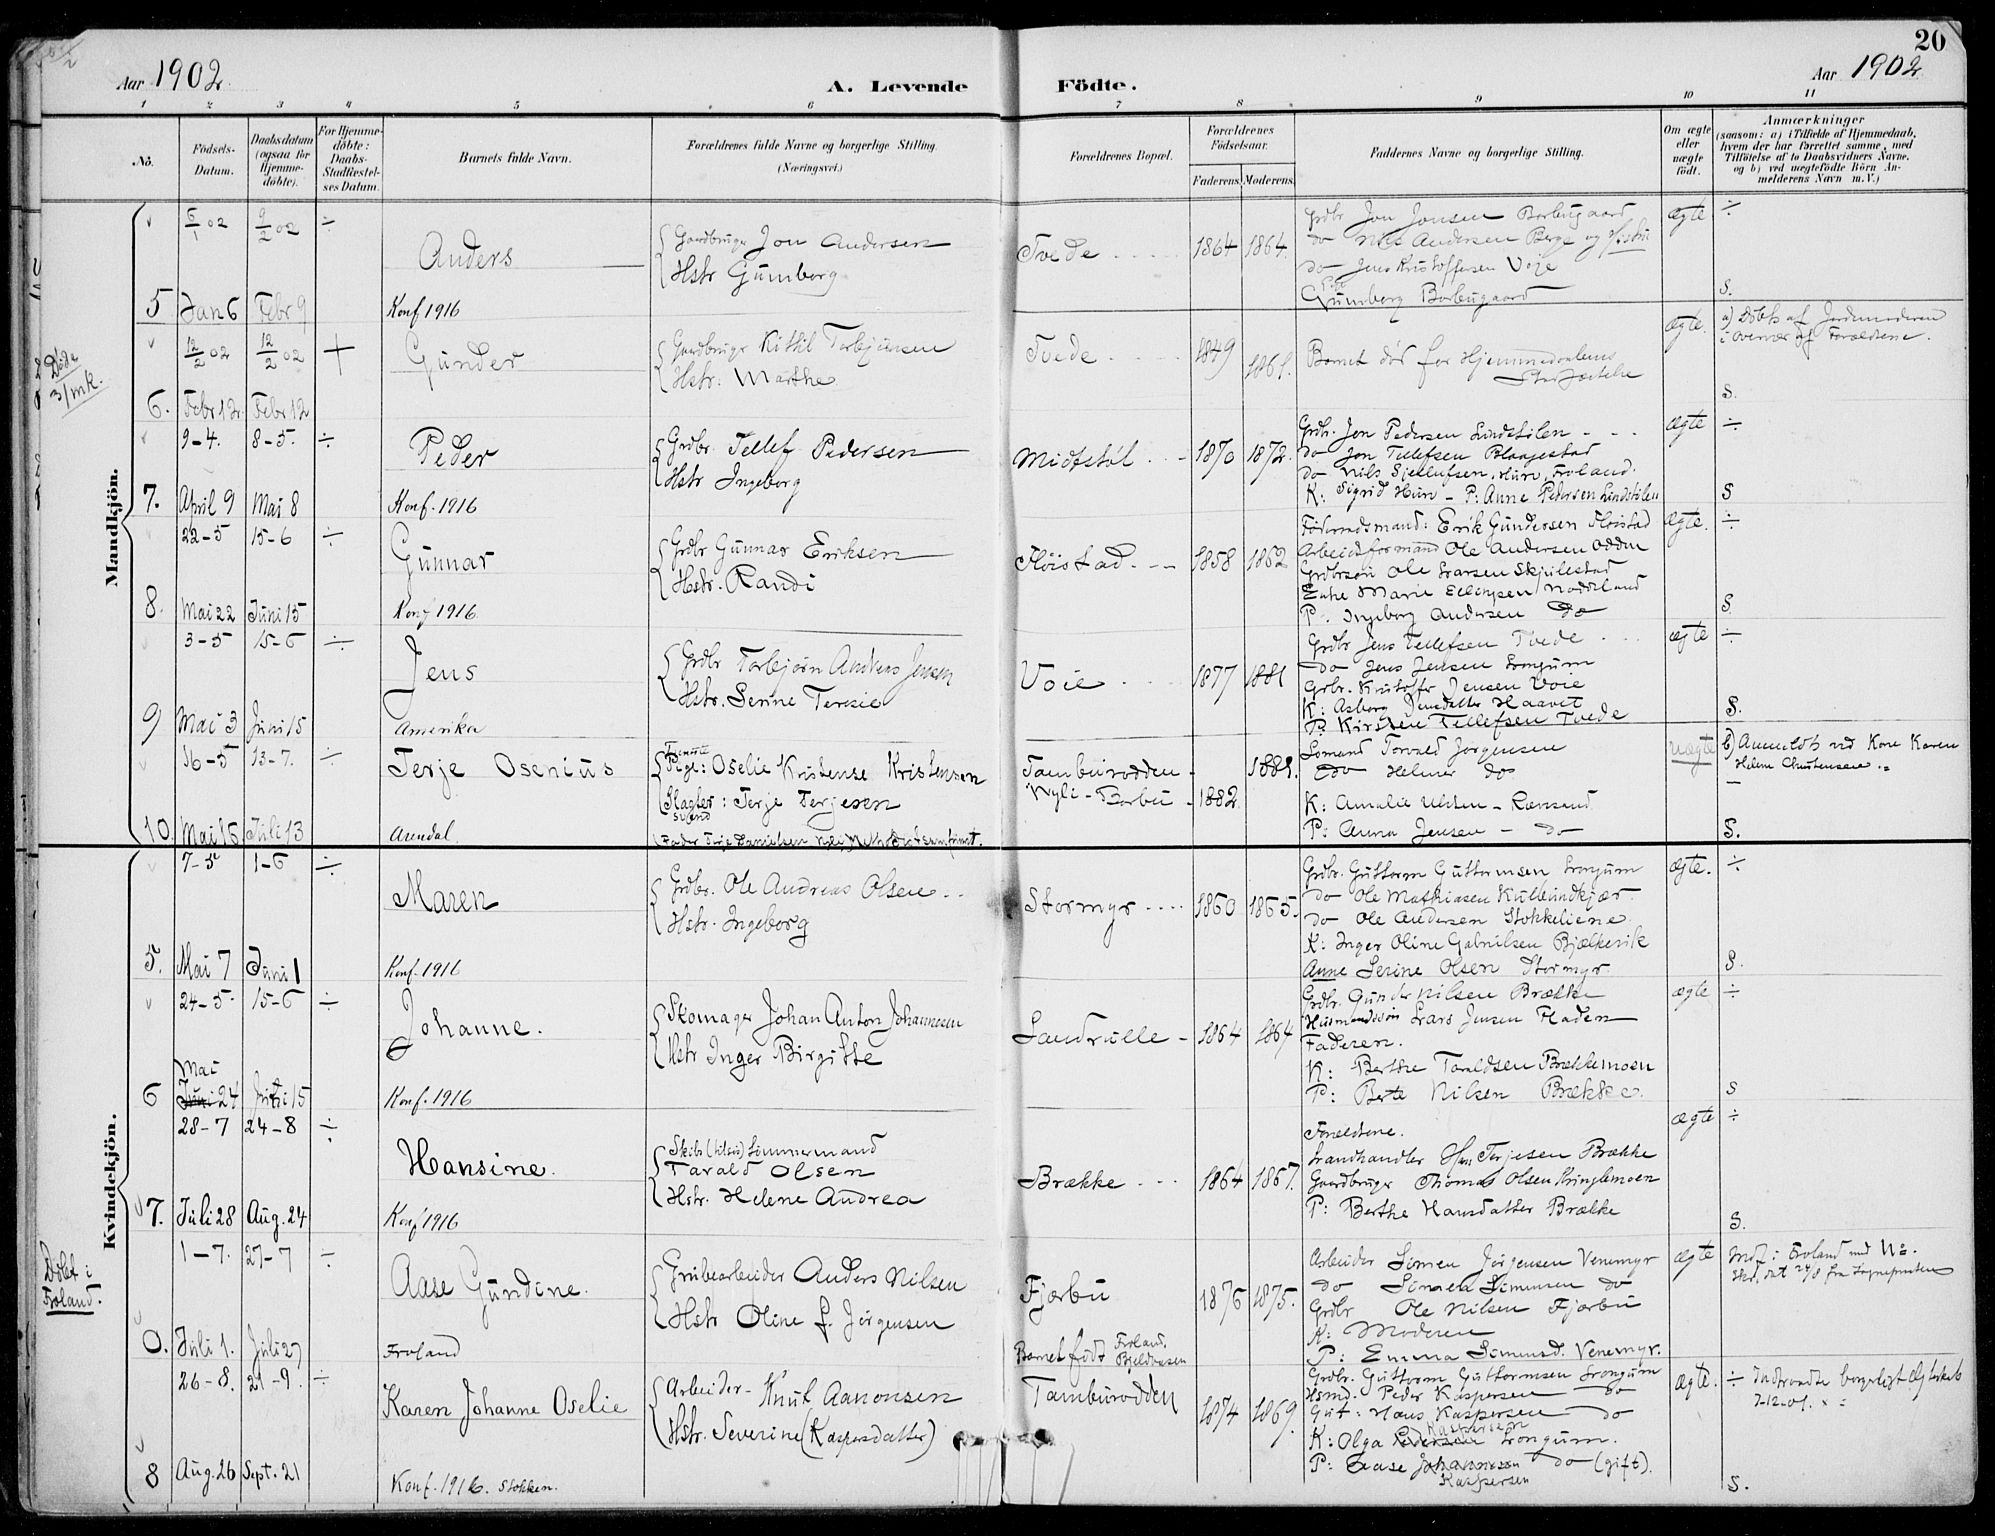 Aar 1902.
A. Levende Födte.
20
Aar 1902
1 2 3 4 5 6 7 8 9 10 11
No.
Födsels-Datum.
Daabsdatum (ogsaa for Hjemme-döbte).
For Hjemme-döbte: Daabs-Stadfæstel-ses Datum.
Barnets fulde Navn.
Forældrenes fulde Navne og borgerlige Stilling. (Næringsvei.)
Forældrenes Bopæl.
Forældrenes Födselsaar.
Faderens. Moderens.
Faddernes Navne og borgerlige Stilling.
Om ægte eller uægte födt.
Anmærkninger
(saasom: a) i Tilfælde af Hjemmedaab,
hvem der har forrettet samme, med
Tilföielse af to Daabsvidners Navne.
og b) ved uægtefödte Börn An-
melderens Navn m.V.)
Mandkjön.
5/1 02 9/2 02 ÷
Anders
Gaardbruger Jon Andersen
Hstr Gumborg
Tvede
1864 1864
Grdbr Jon Jonsen Borbugaard
do Nils Andersen Berge og Hustru
do Jens Kristoffersen Voje
Gumborg Borbugaard
ægte ÷
S.
5 Jan 6 Febr 9
Konf 1916
Döde 3/mk.
12/2 02 12/2 02 +
Gunder
Gaardbruger Kittil Torbjörnsen
Hstr: Marthe
Tvede
1849 1861.
Barnet död før Hjemmedaabens
Stadfæstelse
ægte.
a) Döbt af Jordemoderen
i Overvær af Forældrene.
S.
6. Febr 12. Febr 12
9-4. 8-5. ÷
Peder
Grdbr. Tellef Pedersen
Hstr Ingeborg
Midtstöl
1870 1872.
Grdbr. Jon Pedersen Lindstölen
do Jon Tellefsen Blaagestad
do Nils Sjellufsen, Huro, Froland.
K: Sigrid Huro - P: Anne Pedersen Lindstölen
ægte ÷
S
7. April 9 Mai 8
Konf. 1916
22-5 15-6 ÷
Gunnar
Grdbr Gunnar Eriksen
Hstr. Randi
Flöistad
1858 1862
Föderaadsmand: Erik Gundersen Flöistad
Arbeidsformand Ole Andersen Odden
Grdbrsön Ole Larsen Skjulestad
Enke Marie Ellingsen Nödeland
P: Ingeborg Andersen do
Ægte. ÷
S
8. Mai 22 Juni 15
Konf 1916
3-5 15-6 ÷
Jens
Grdbr Torbjörn Andreas Jensen
Hstr. Serine Teresie
Voie
1877 1881
Grdbr Jens Tellefsen Tvede
do Jens Jensen Longum
Grbr. Kristoffer Jensen Voie
K: Asborg Jensdatter Haavet
P. Kirsten Tellefsen Tvede
ægte ÷
S.
9 Mai 3 Juni 15
Amerika
16-5 13-7. ÷
Terje Osenius
Pige: Oselie Kristense Kristensen
Slagter: Terje Terjesen
svend
Tamburodden
Nyli - Barbu
1882.
Sömand Torvald Jörgensen
do Helmer do
K: Amalie Ulsten
P: Anna Jensen - do
uægte
b) Anmeldt ved Kone Karen
S.
10. Mai 16 Juli 13
Arendal.
Kvindekjön.
7-5 1-6 ÷
Maren
Grdbr. Ole Andreas Olsen
Hstr. Ingeborg
Stormyr
1860 1865.
Grdbr. Guttorm Guttormsen Longum
do Ole Mathiasen
do Ole Andersen Stokkeliene
K: Inger Oline Gabrielsen Bjælkevik
Anne Serine Olsen Stormyr.
ægte. ÷
S.
5. Mai 7 Juni 1
Konf. 1916
24-5. 15-6 ÷
Johanne.
Skomager Johan Anton Johannesen
Hstr Inger Birgitte
Sandrulle
1864 1864
Grdbr. Gunder Nilsen Brække
Husmandssön Lars Jensen Fladen
Faderen.
K: Berthe Taraldsen Brækkemoen
P: Berte Nilsen Brække.
ægte ÷
S
Mai
6 Juni 24 Juni 15
Konf. 1916
28-7 24-8 ÷
Hansine.
Tarald Olsen
Hstr. Helene Andrea
Brække
1864 1867.
Forældrene.
Landhandler Terjesen Brække
Gaardbruger Thomas Olsen Kringlemoen
P: Berthe Hansdatter Brække
ægte ÷
S.
7. Juli 28 Aug. 24
Konf 1916
Döbt i Froland.
1-7. 27-7 ÷
Aase Gundine.
Grubearbeider Anders Nilsen
Hstr Oline f. Jörgensen
Fjærbu
1876 1875.
Arbeider Simen Jörgensen Venemyr
do Simen Simensen do
Grdbr Ole Nilsen Fjærbu
K: Moderen
P: Emma Simensd. Venemyr.
ægte
0. Juli 1. Juli 27
Froland
Barnet født Froland.
26-8. 21-9. ÷
Karen Johanne Oselie
Arbeider - Knut Aanonsen
Hstr. Severine (Kaspersdatter)
Tamburodden
1874 1869.
Grdbr. Guttorm Guttormsen Longum
Hsmd. Peder Kaspersen do
Gut: Hans Kaspersen do
K: Olga Kaspersen Longum.
P: Aase Johannesen do (gift).
Kaspersen
ægte. ÷
Indtraadte borgerligt Ægteskab
7-12-01.
S.
8 Aug. 26 Sept. 21
Konf. 1916. Stokken.